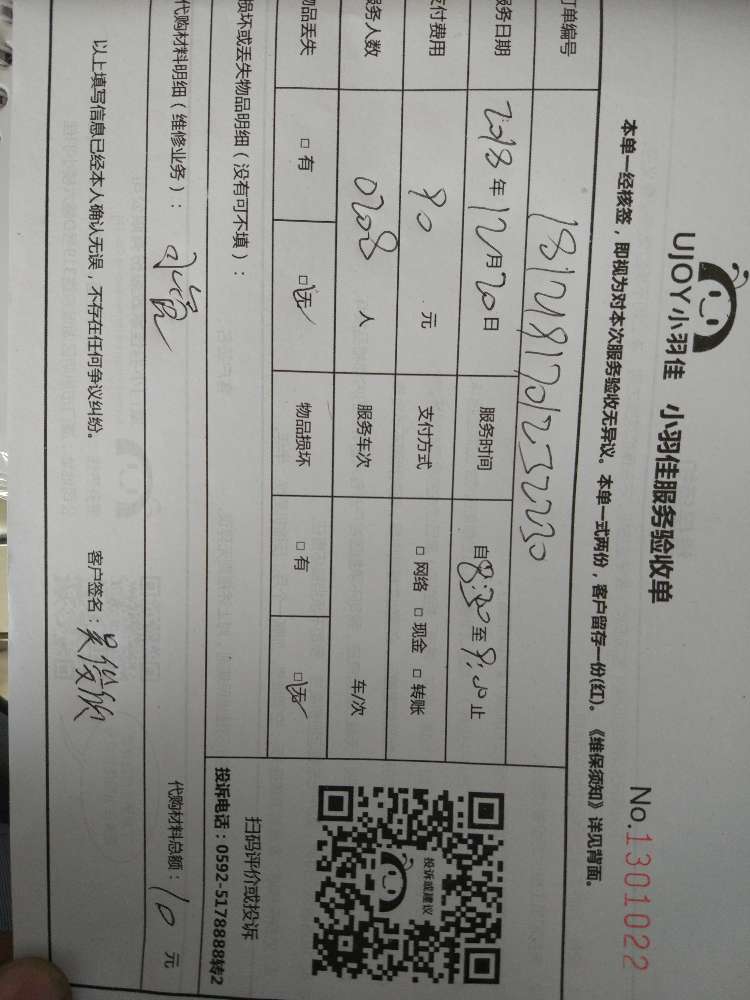 UJOY小羽佳 小羽佳服务验收单
No.1301022
本单一经核签，即视为对本次服务验收无异议。本单一式两份，客户留存一份(红)。《维保须知》详见背面。
订单编号 1812181701232230
服务日期 2018年12月20日 服务时间 自8:30至9:00止
支付费用 90元 支付方式 □网络 □现金 □转账
服务人数 0208人 服务车次 车/次
物品丢失 □有 □无 物品损坏 □有 □无
损坏或丢失物品明细（没有可不填）：
投诉或建议
扫码评价或投诉
投诉电话：0592-5178888转2
代购材料明细（维修业务）： 代购材料总额：10元
以上填写信息已经本人确认无误，不存在任何争议纠纷。 客户签名：吴俊欣